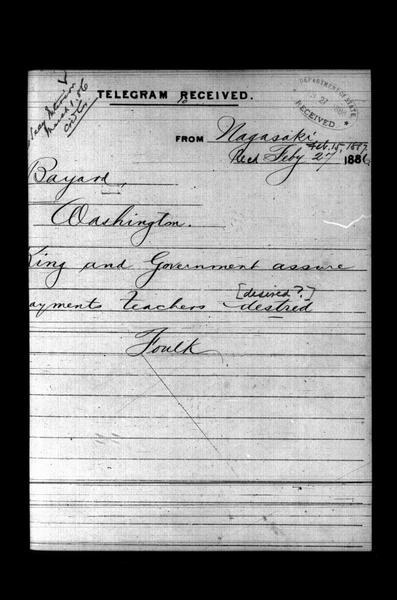 March 1, 86
TELEGRAM RECEIVED.
DEPARTMENT OF STATE
RECEIVED
FROM Nagasaki,
Recd Feby 27 1886
Bayard,
Washington.
King and Government assure
ayments teachers destred
[desired?]
Foulk